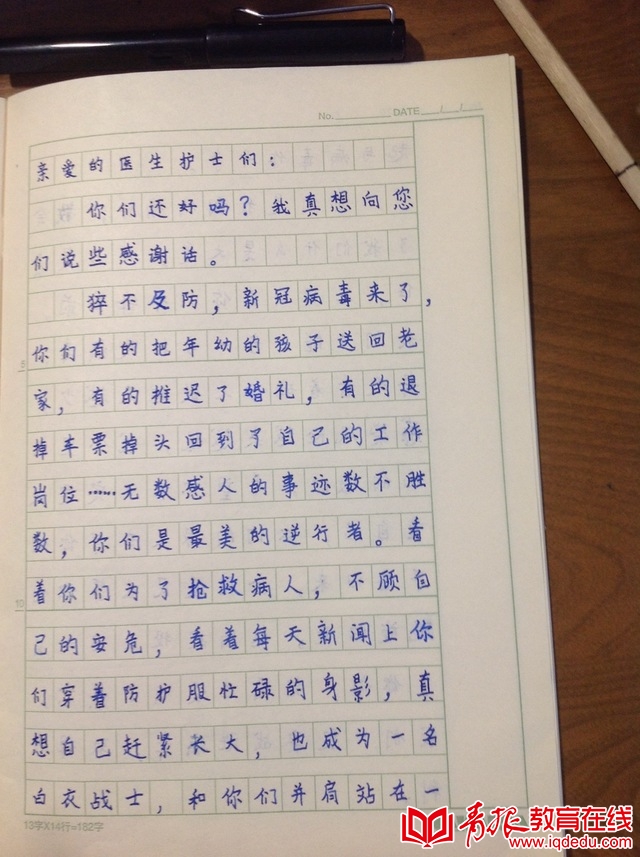 No. DATE / /
亲爱的医生护士们：
你们还好吗？我真想向您
们说些感谢话。
猝不及防，新冠病毒来了，
你们有的把年幼的孩子送回老
家，有的推迟了婚礼，有的退
掉车票掉头回到了自己的工作
岗位……无数感人的事迹数不胜
数，你们是最美的逆行者。看
着你们为了抢救病人，不顾自
己的安危，看着每天新闻上你
们穿着防护服忙碌的身影，真
想自己赶紧长大，也成为一名
白衣战士，和你们并肩站在一
5
10
13字X14行=182字
青报教育在线
www.iqdedu.com